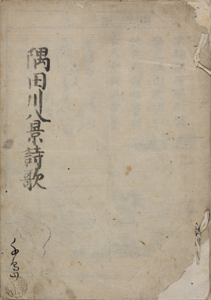 隅田川八景詩歌